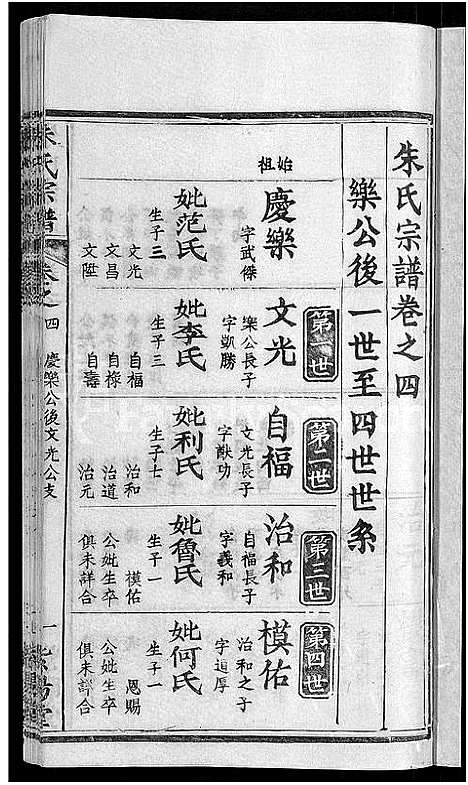 朱氏宗譜卷之四
樂公後一世至四世世系
始祖
慶樂
字武傑
妣范氏
生子三
文光
文昌
文陞
第一世
文光
樂公長子
字凱勝
妣李氏
生子三
自福
自祿
自壽
第二世
自福
文光長子
字猷功
妣利氏
生子七
治和
治道
治元
第三世
治和
自福長子
字義和
妣魯氏
生子一
模佑
公妣生卒
俱未詳合
第四世
模佑
治和之子
字迫厚
妣何氏
生子一
恩賜
公妣生卒
俱未詳合
朱氏宗譜
卷之四
慶樂公後文光公支
一
堂